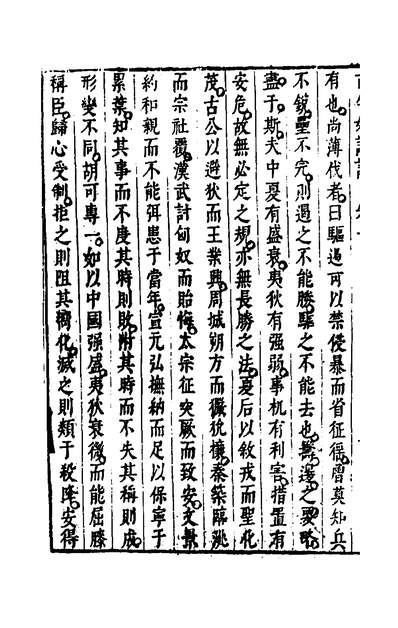 有也尚薄伐者曰驅遏可以禁侵暴而省征徭曾莫知兵
不銳壘不完則遏之不能勝驅之不能去也議邊之要略
盡于斯夫中夏有盛衰夷狄有强弱事机有利害措置有
安危故無必定之規亦無長勝之法夏后以敘戎而聖化
茂古公以避狄而王業興周城朔方而玁狁攘秦築臨洮
而宗社覆漢武討匈奴而貽悔太宗征突厥而致安文景
約和親而不能弭患于當年宣元弘撫納而足以保寧于
累葉知其事而不度其時則敗附其時而不失其稱則成
形變不同胡可專一如以中國强盛夷狄衰微而能屈膝
稱臣歸心受制拒之則阻其嚮化滅之則類于殺降安得